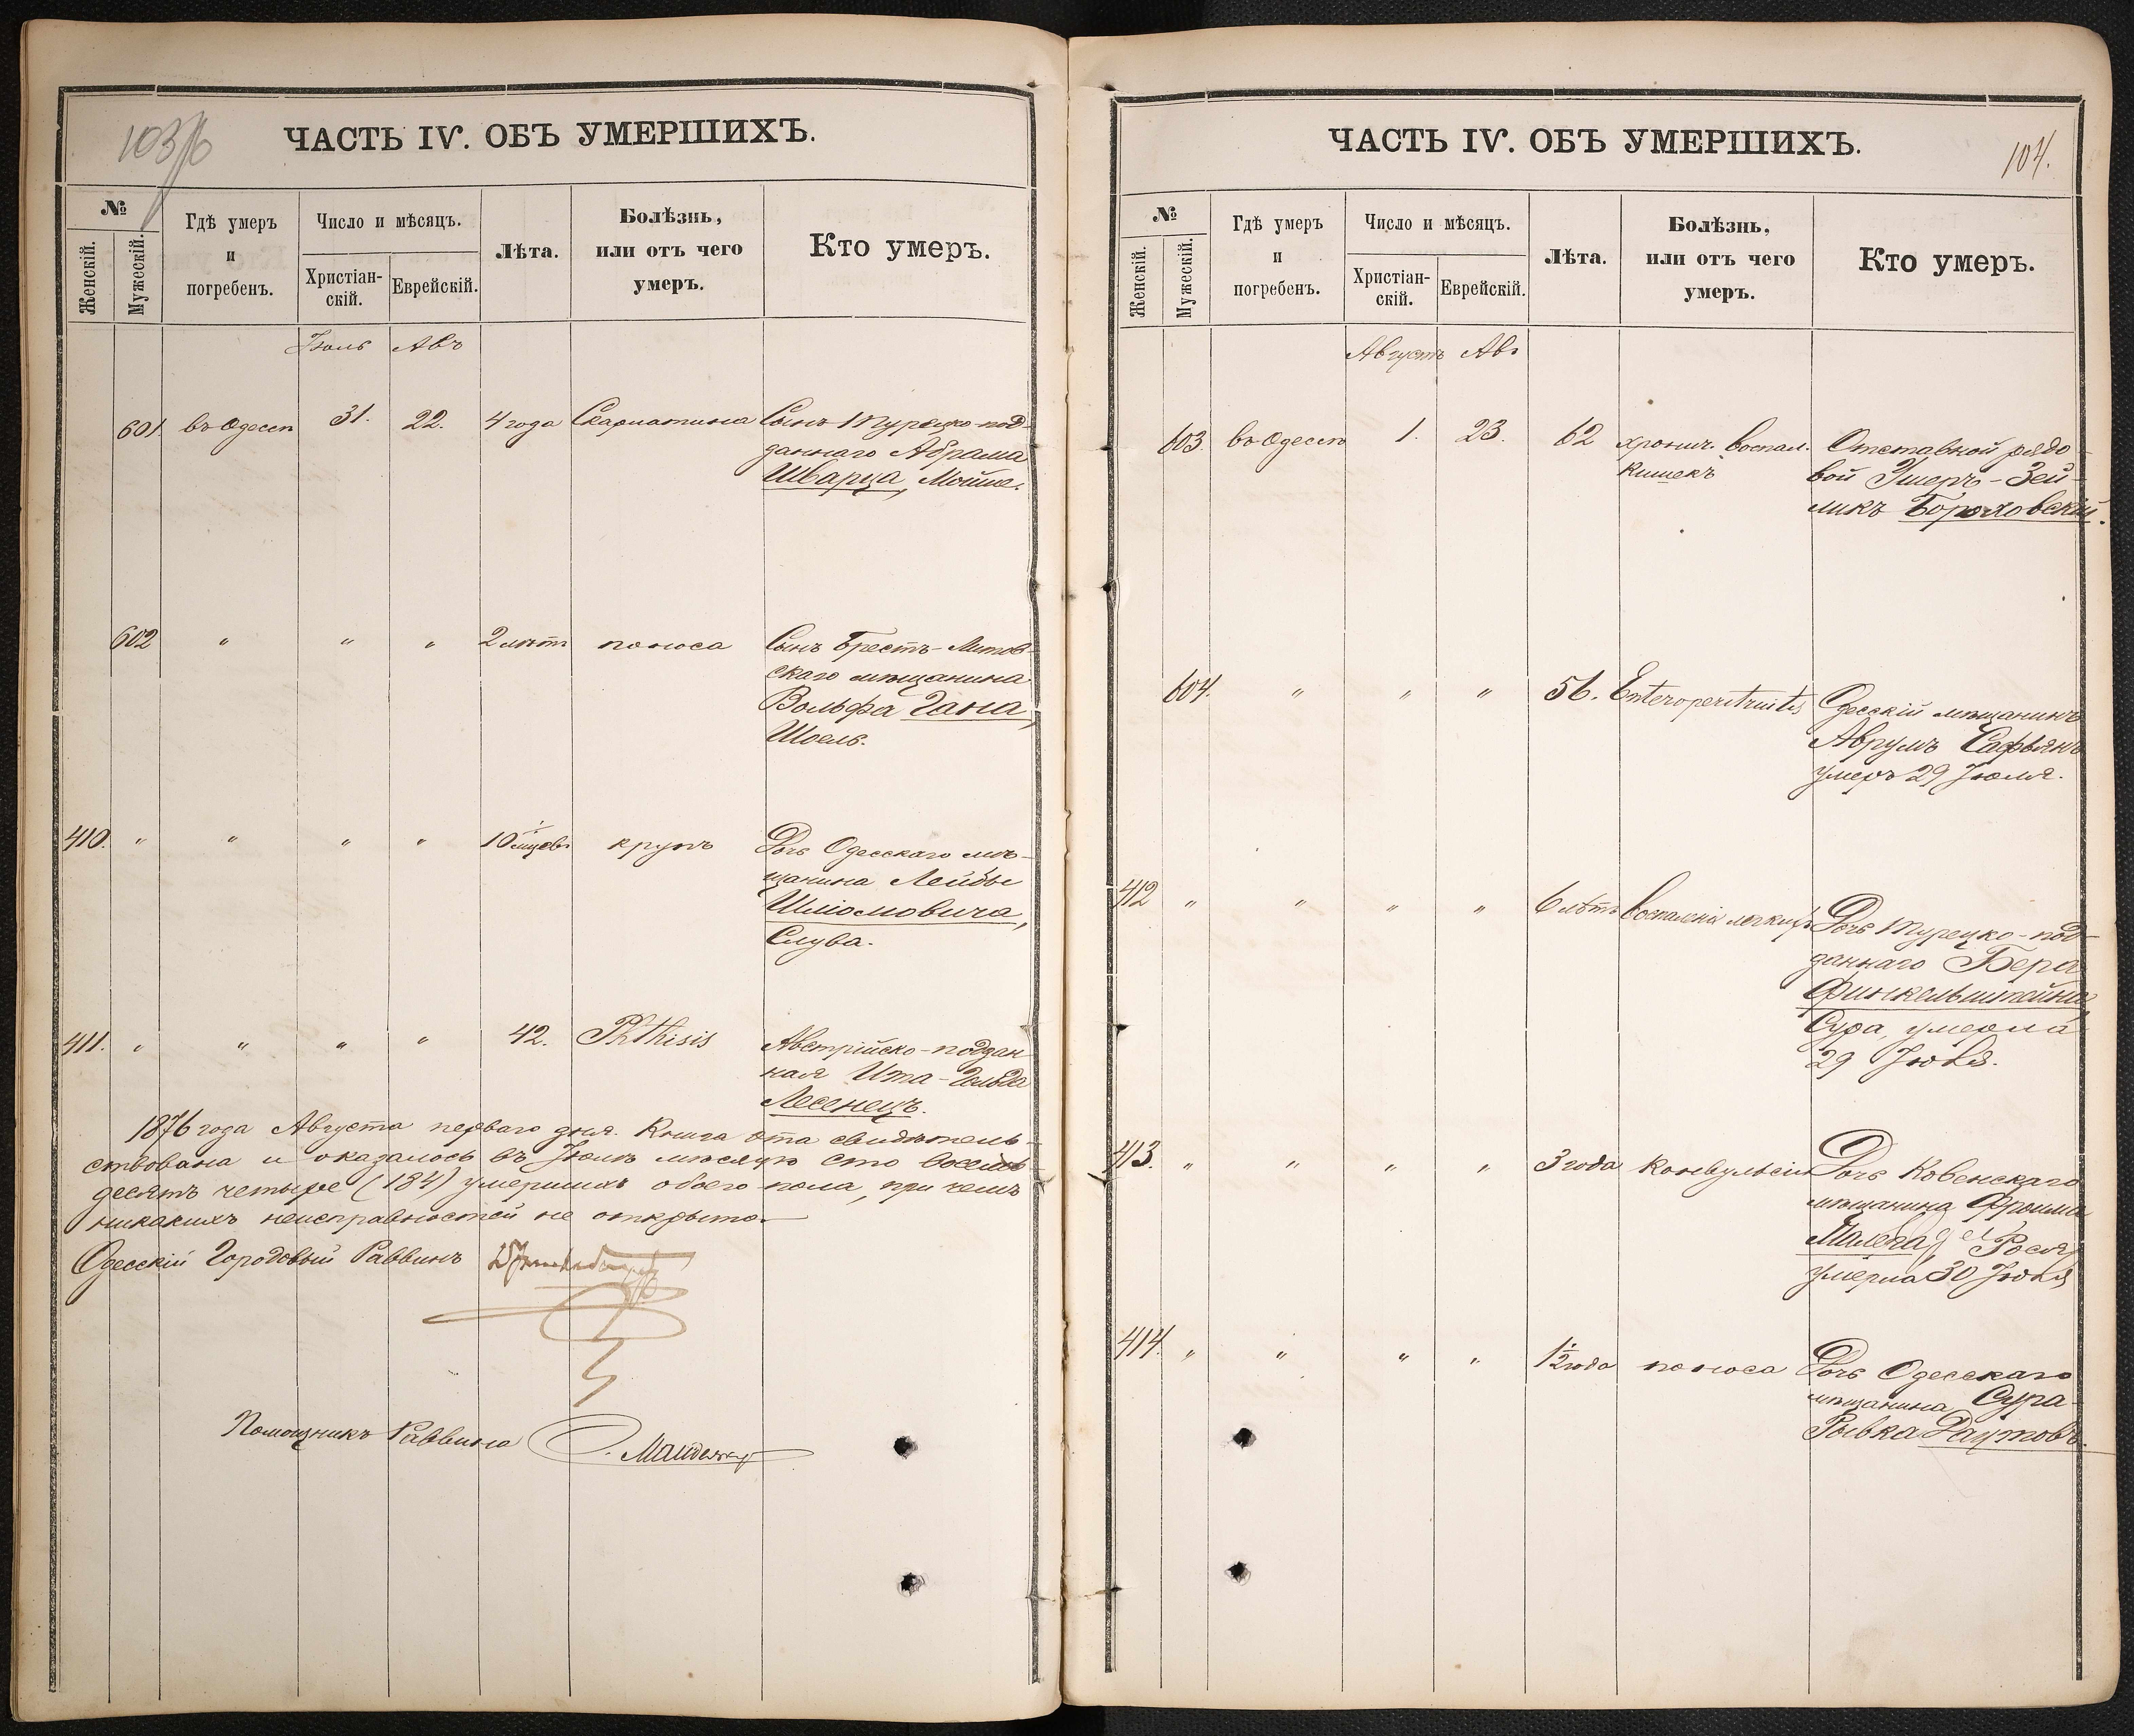 103/б
ЧАСТЬ IV. ОБЪ УМЕРШИХЪ.
№
Женскій.
Мужескій.
Гдѣ умеръ
и
погребенъ.
Число и мѣсяцъ.
Христіан-
скій.
Еврейскій.
Лѣта.
Болѣзнь,
или отъ чего
умеръ.
Кто умеръ.
Іюль Авъ
601. въ Одессѣ 31. 22. 4 года Скарлатина Сынъ Турецко-под-
даннаго Абрама
Шварца, Мойше.
602 " " " 2 лѣтъ поноса Сынъ Брестъ-Литов-
скаго мѣщанина
Вольфа Гана,
Шоель.
410. " " " " 10 мцевъ крупъ Дочь Одесскаго мѣ-
щанина Лейбы
Шліомовича,
Слува.
411. " " " " 42. Phthisis Австрійско-поддан
ная Ита-Гольда
Лесенецъ.
1876 года Августа перваго дня. Книга эта свидѣтель-
ствована и оказалось въ Іюлѣ мѣсяцѣ сто восемь-
десятъ четыре (184) умершихъ обоего пола, при чемъ
никакихъ неисправностей не открыто.
Одесскій Городовый Раввинъ
Помощникъ Раввина
ЧАСТЬ IV. ОБЪ УМЕРШИХЪ.
104.
№
Женскій.
Мужескій.
Гдѣ умеръ
и
погребенъ.
Число и мѣсяцъ.
Христіан-
скій.
Еврейскій.
Лѣта.
Болѣзнь,
или отъ чего
умеръ.
Кто умеръ.
Августъ Авъ
603. въ Одессѣ 1. 23. 62 хронич. воспал. Отставной рядо
кишекъ вой Эшеръ-Зей-
ликъ Бороховскій.
604. " " " 56. Enteroperitonitis Одесскій мѣщанинъ
Аврумъ Сафьянъ
умеръ 29 Іюля.
412 " " " " 6 лѣтъ воспаленія легкихъ Дочь Турецко-под-
даннаго Бера
Финкельштейна
Сура, умерла
29 Іюля.
413. " " " " 3 года Конвульсіи Дочь Ковенскаго
мѣщанина Фроима
Рося,
умерла 30 Іюля
414. " " " " 1 1/2 года поноса Дочь Одесскаго
мѣщанина Сура-
Рывка Даутовъ.